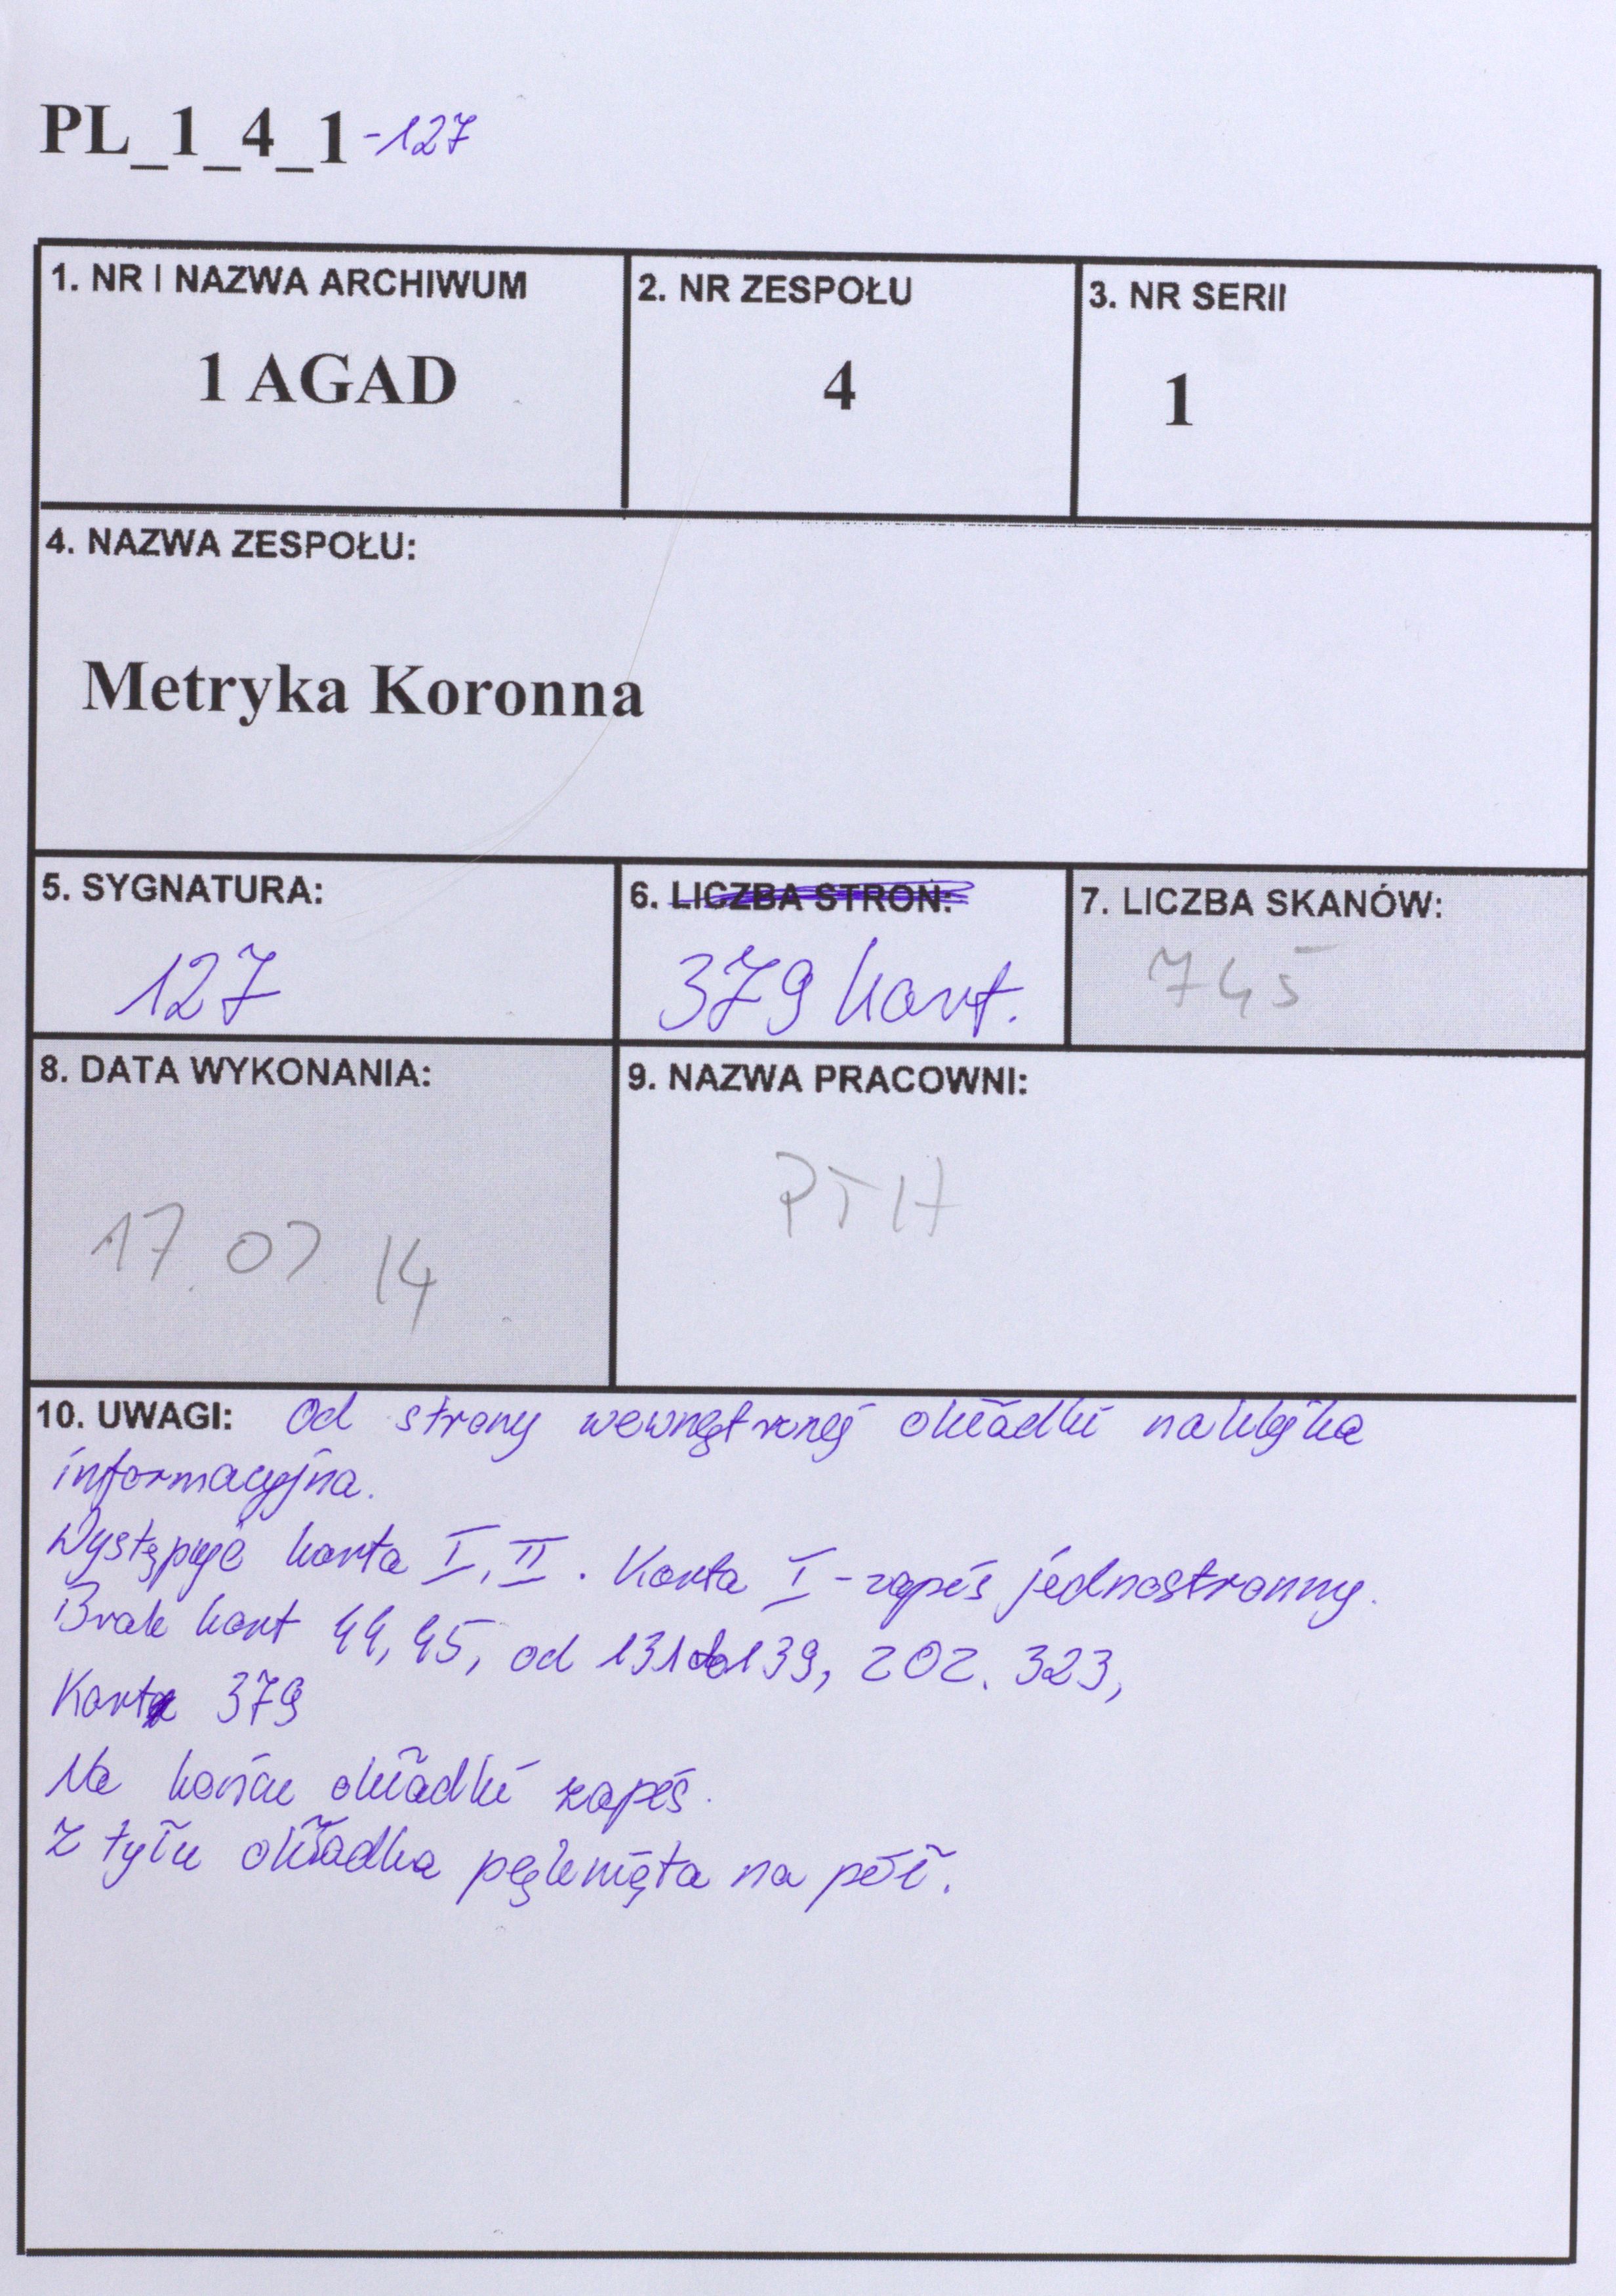 PL_1_4_1-127
1. NR I NAZWA ARCHIWUM
1 AGAD
2. NR ZESPOŁU
4
3. NR SERII
1
4. NAZWA ZESPOŁU:
Metryka Koronna
5. SYGNATURA:
127
6. LICZBA STRON:
379 kart.
7. LICZBA SKANÓW:
745
8. DATA WYKONANIA:
17.07 14
9. NAZWA PRACOWNI:
PTH
10. UWAGI: Od strony wewnętrznej okładki naklejka
informacyjna.
Występuje karta I, II. Karta I - zapis jednostronny.
Brak kart 44, 45, od 131 do 139, 202. 323,
Karta 379
Na końcu okładki zapis.
Z tyłu okładka pęknięta na pół.